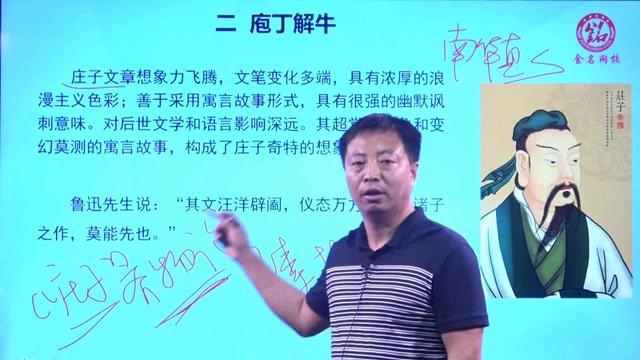 二 庖丁解牛
金名网校
南华真人
庄子文章想象力飞腾，文笔变化多端，具有浓厚的浪
漫主义色彩；善于采用寓言故事形式，具有很强的幽默讽
刺意味。对后世文学和语言影响深远。其超常 和变
幻莫测的寓言故事，构成了庄子奇特的想象
莊子
鲁迅先生说：“其文汪洋辟阖，仪态万方 诸子
之作，莫能先也。”